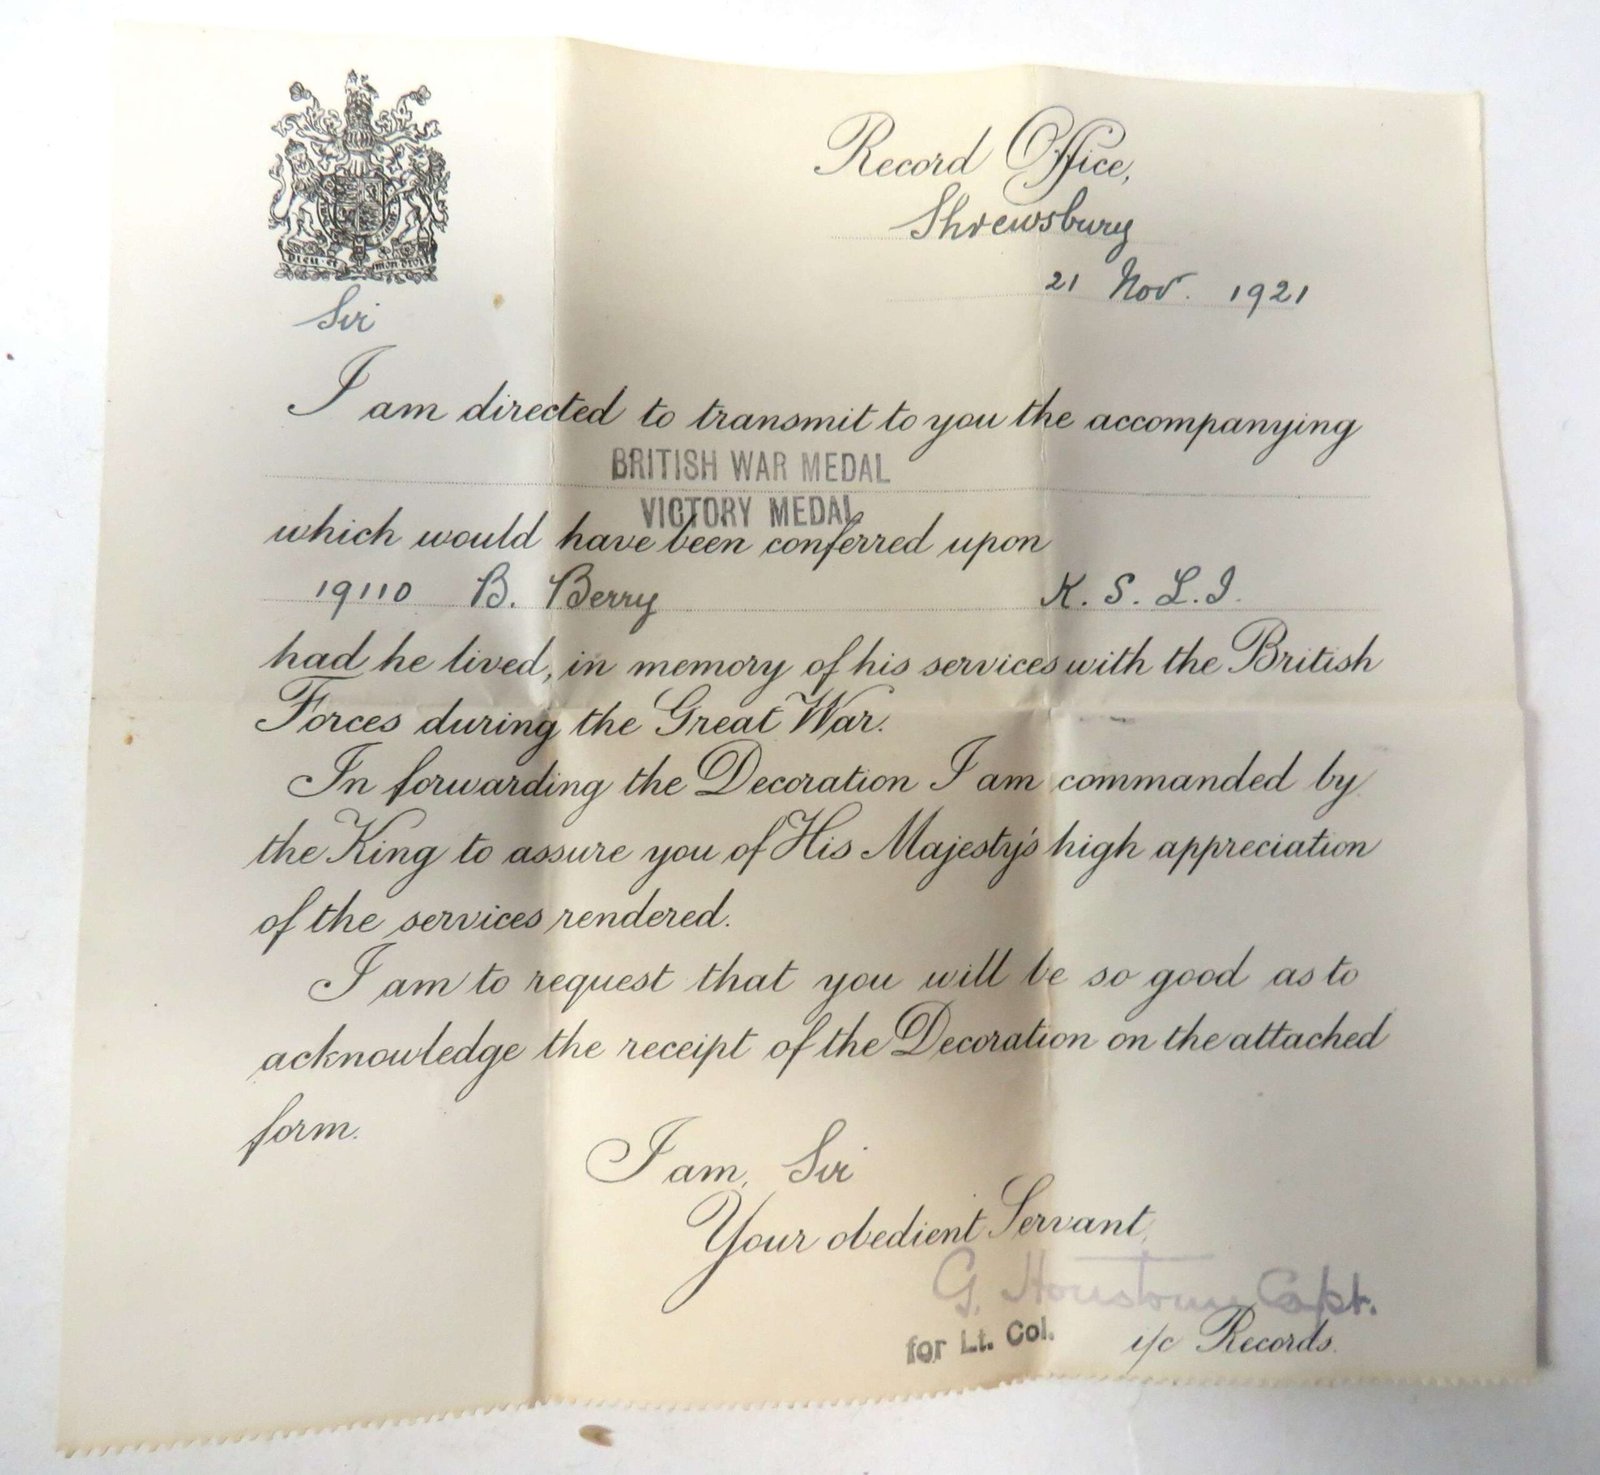 Record Office,
Shrewsbury
21 Nov. 1921
DIEU ET MON DROIT
Sir
I am directed to transmit to you the accompanying
BRITISH WAR MEDAL
VICTORY MEDAL
which would have been conferred upon
19110 B. Berry K. S. L. I.
had he lived, in memory of his services with the British
Forces during the Great War.
In forwarding the Decoration I am commanded by
the King to assure you of His Majesty's high appreciation
of the services rendered.
I am to request that you will be so good as to
acknowledge the receipt of the Decoration on the attached
form.
I am, Sir
Your obedient Servant,
G. Capt.
for Lt. Col. i/c Records.